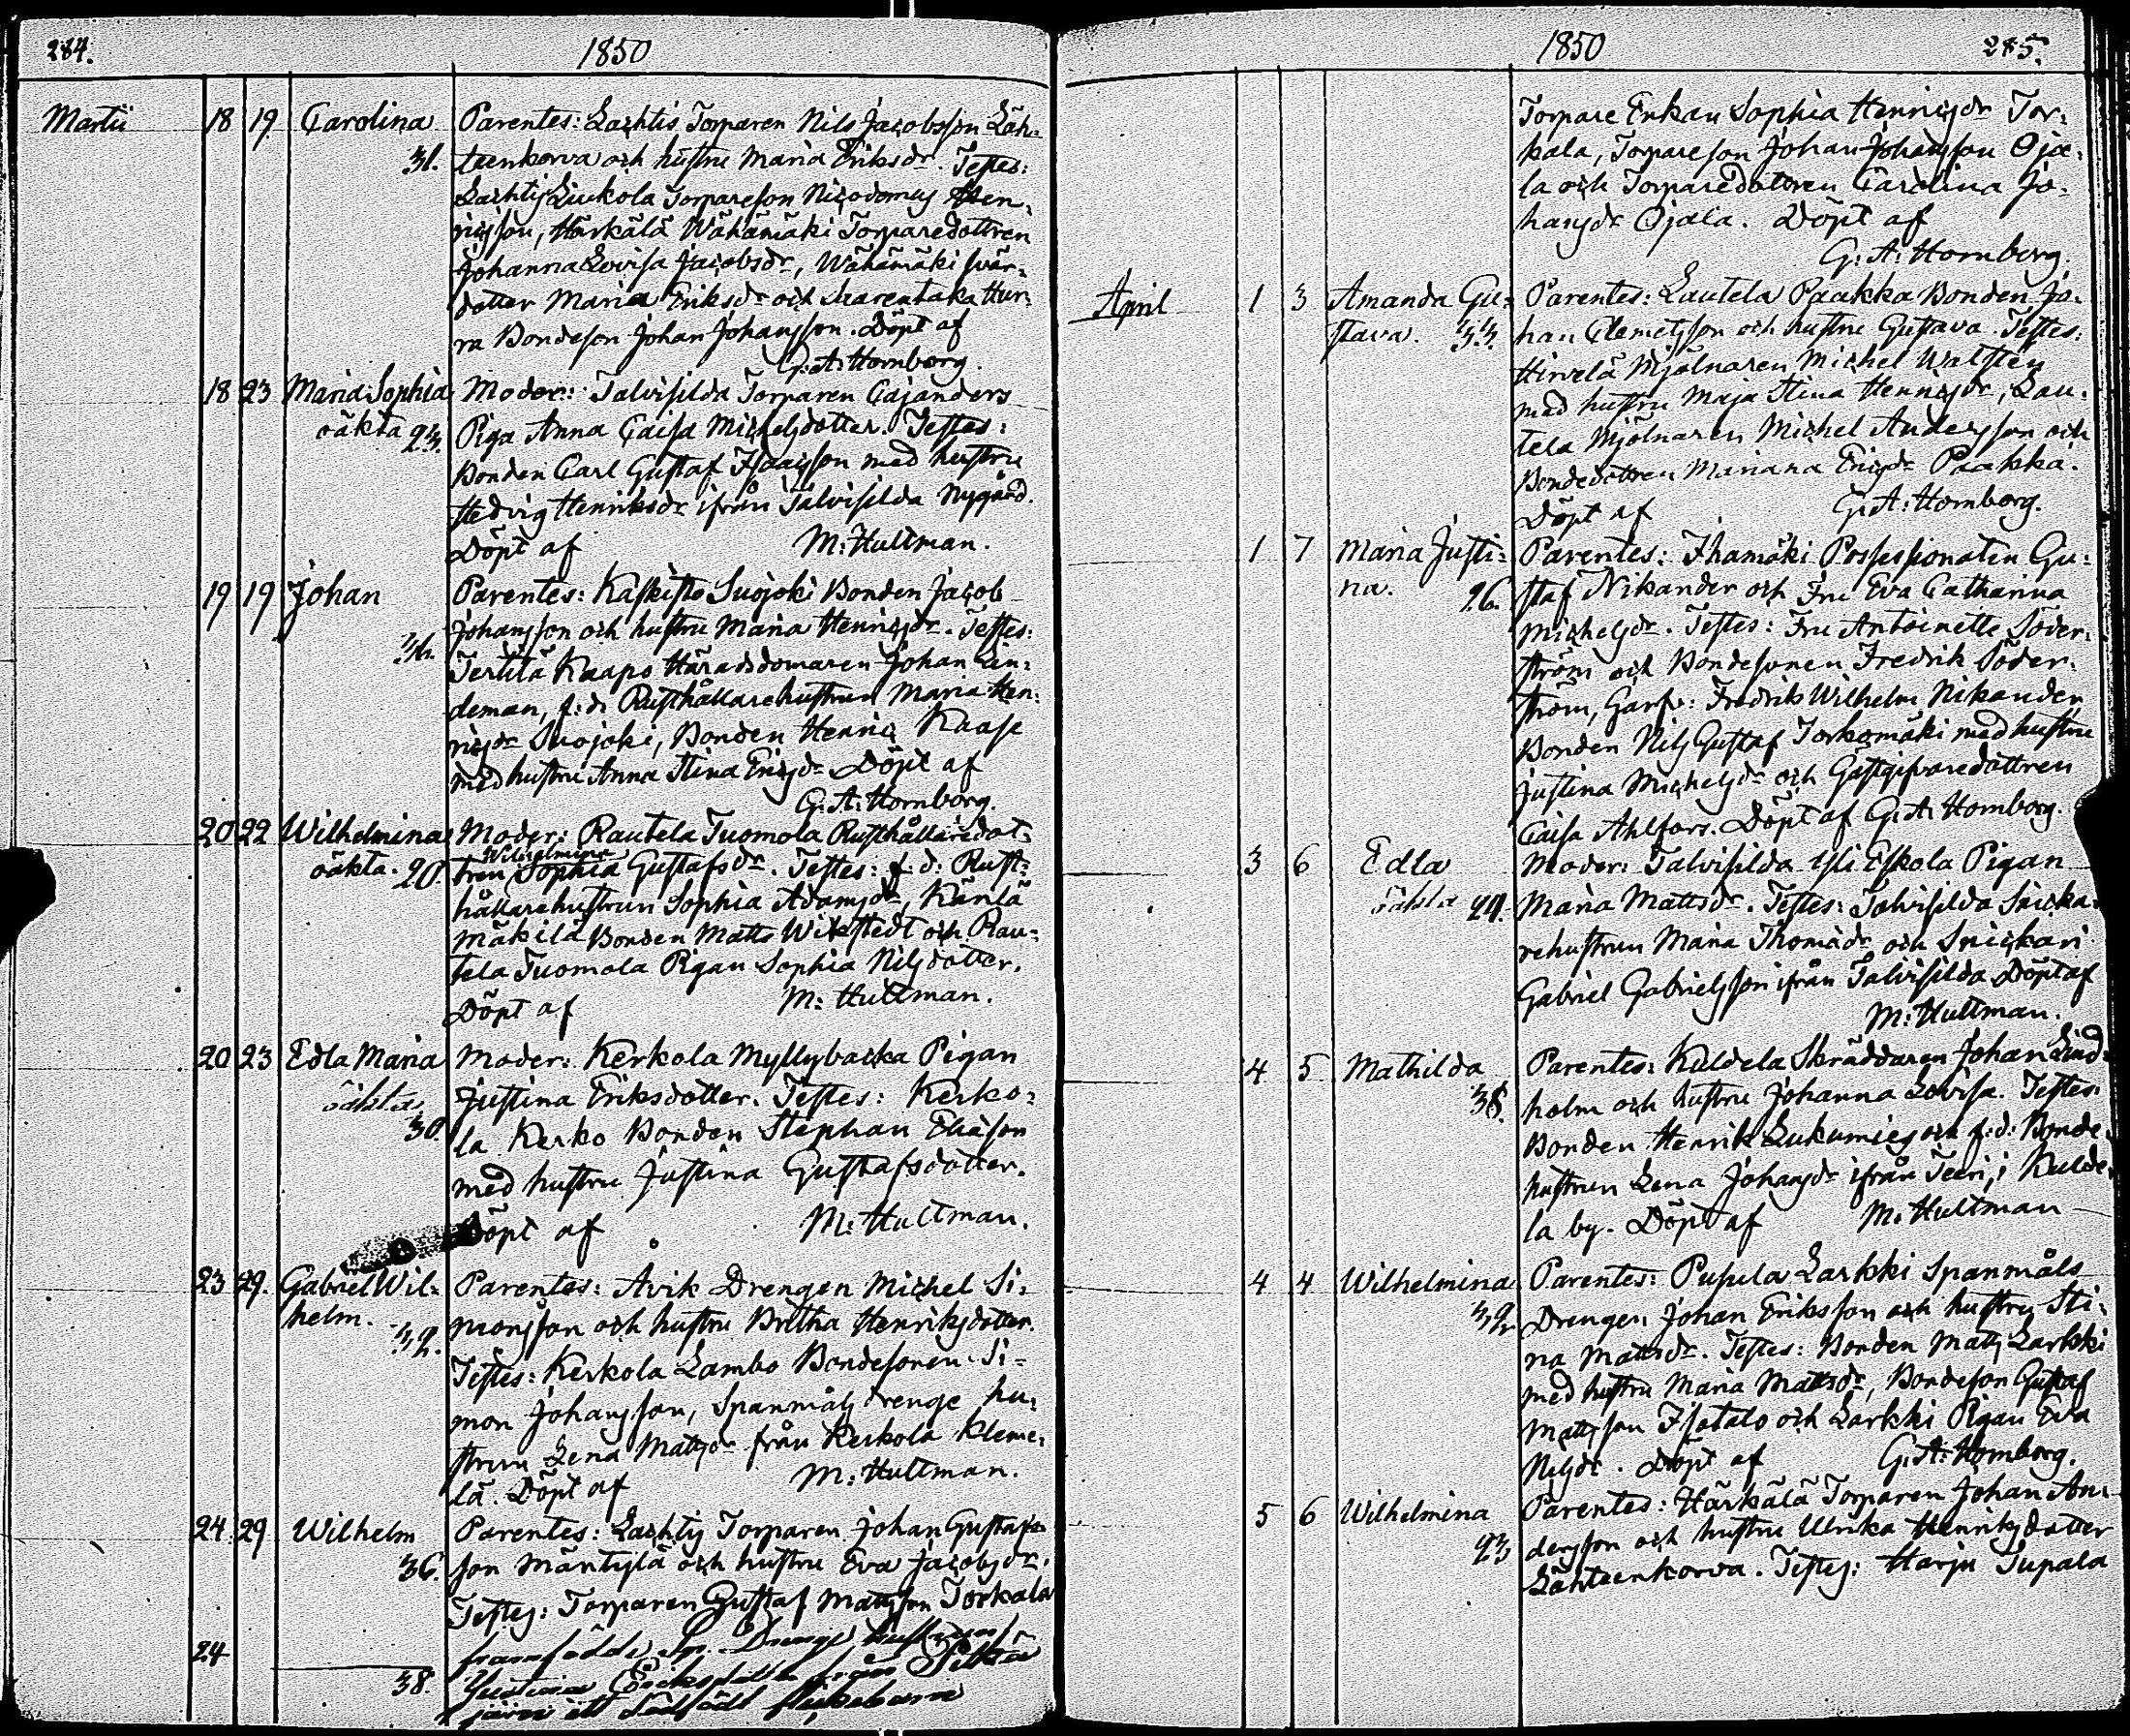 284.
1850
Martii 18 19 Carolina Parentes: Lachtis Torparen Nils Jacobsson Läh-
31. teenkorva och hustru Maria Eriksdr. Testes:
Lachtis Liukola Torpareson Nicodemus Hen-
ricsson, Härkälä Wähämäki Torparedottren
Johanna Lovisa Jacobsdr, Wähämäki svär-
dotter Maria Eriksdr och Hur-
ra Bondeson Johan Johansson. Döpt af
G: A: Hornborg.
18 23 Maria Sophia Moder: Talvisilda Torparen Cajanders
oäkta 23. Piga Anna Caisa Michelsdotter. Testes:
Bonden Carl Gustaf Isaacsson med hustru
Hedvig Henriksdr ifrån Talvisilda Nygård.
Döpt af M: Hultman.
19 19 Johan Parentes: Kaskisto Suojoki Bonden Jacob
Johansson och hustru Maria Henricsdr. Testes:
34. Terttilä Kaapo Häradsdomaren Johan Lin-
deman, f:d: Rusthållarehustrun Maria Hen-
ricsdr Suojoki, Bonden Henric Kaase
med hustru Anna Stina Ericsdr Döpt af
G: A: Hornborg.
20 22 Wilhelmina Moder: Rautela Tuomola Rusthållaredot-
Wilhelmina
oäkta. 20. tren Sophia Gustafsdr. Testes: f:d: Rust-
hållarehustrun Sophia Adamsdr, Käntä
mäkilä Bonden Matts Wikstedt och Rau-
tela Tuomola Pigan Sophia Nilsdotter.
Döpt af M: Hultman.
20 23 Edla Maria Moder: Kerkola Myllybacka Pigan
oäkta Justina Eriksdotter. Testes: Kerko-
30. la Kerko Bonden Stephan Eliason
med hustru Justina Gustafsdotter.
Döpt af M: Hultman.
23 29. Gabriel Wil- Parentes: Avik Drengen Michel Si-
helm. 32. monsson och hustru Britha Henriksdotter.
Testes: Kerkola Lambo Bondesonen Si-
mon Johansson, Spanmåls drenge hu-
strun Lena Mattsdr från Kerkola Kleme-
lä. Döpt af M: Hultman.
24. 29 Wilhelm Parentes: Lachtis Torparen Johan Gustafs-
36. son Mäntylä och hustru Eva Jacobsdr.
Testes: Torparen Gustaf Mattsson Torkala
24 framfödde Sp. Drenge hustrun
38. Justina Ericksdotter från
järvi ett dödfödt flickebarn
1850
285.
Torpare Enkan Sophia Henricsdr Tor-
kala, Torpareson Johan Johansson Oja-
la och Torparedottren Carolina Jo-
hansdr Ojala. Döpt af
G: A: Hornborg.
April 1 3 Amanda Gu- Parentes: Lautela Paakka Bonden Jo-
stava. 33. han Clemetsson och hustru Gustava. Testes:
Hirvelä Mjölnaren Michel Walsten
med hustru Maja Stina Henricsdr, Lau-
tela Mjölnaren Michel Andersson och
Bondedottren Mariana Ericsdr Paakka.
Döpt af G: A: Hornborg.
1 7 Maria Justi- Parentes: Ihamäki Possessionaten Gu-
na. 26. staf Nikander och Fru Eva Catharina
Michelsdr. Testes: Fru Antoinette Söder-
ström och Bondesonen Fredrik Söder-
ström, Garfv: Fredrik Wilhelm Nikander
Bonden Nils Gustaf Torkomäki med hustru
Justina Michelsdr och Gästgifvaredottren
Caisa Ahlfors. Döpt af G: A: Hornborg.
3 6 Edla Moder: Talvisilda Yli Eskola Pigan
oäkta 24. Maria Mattsdr. Testes: Talvisilda Snicka-
rehustrun Maria Thomasdr och Snickari
Gabriel Gabrielsson ifrån Talvisilda Döpt af
M: Hultman.
4 5 Mathilda Parentes: Kuldela Skräddaren Johan Lind-
38. holm och hustru Johanna Lovisa. Testes:
Bonden Henrik Lukumies och f:d: Bonde-
hustrun Lena Johansdr ifrån Teeri, i Kulde-
la by. Döpt af M: Hultman
4 4 Wilhelmina Parentes: Pupula Larkki Spanmåls
32 Drengen Johan Eriksson och hustru Sti-
na Mattsdr. Testes: Bonden Matts Larkki
med hustru Maria Mattsdr, Bondeson Gustaf
Mattsson Isotalo och Larkki Pigan Eva
Nilsdr. Döpt af G: A: Hornborg.
5 6 Wilhelmina Parentes: Härkälä Torparen Johan An-
23 dersson och hustru Ulrika Henriksdotter
Lähteenkorva. Testes: Harju Tupala